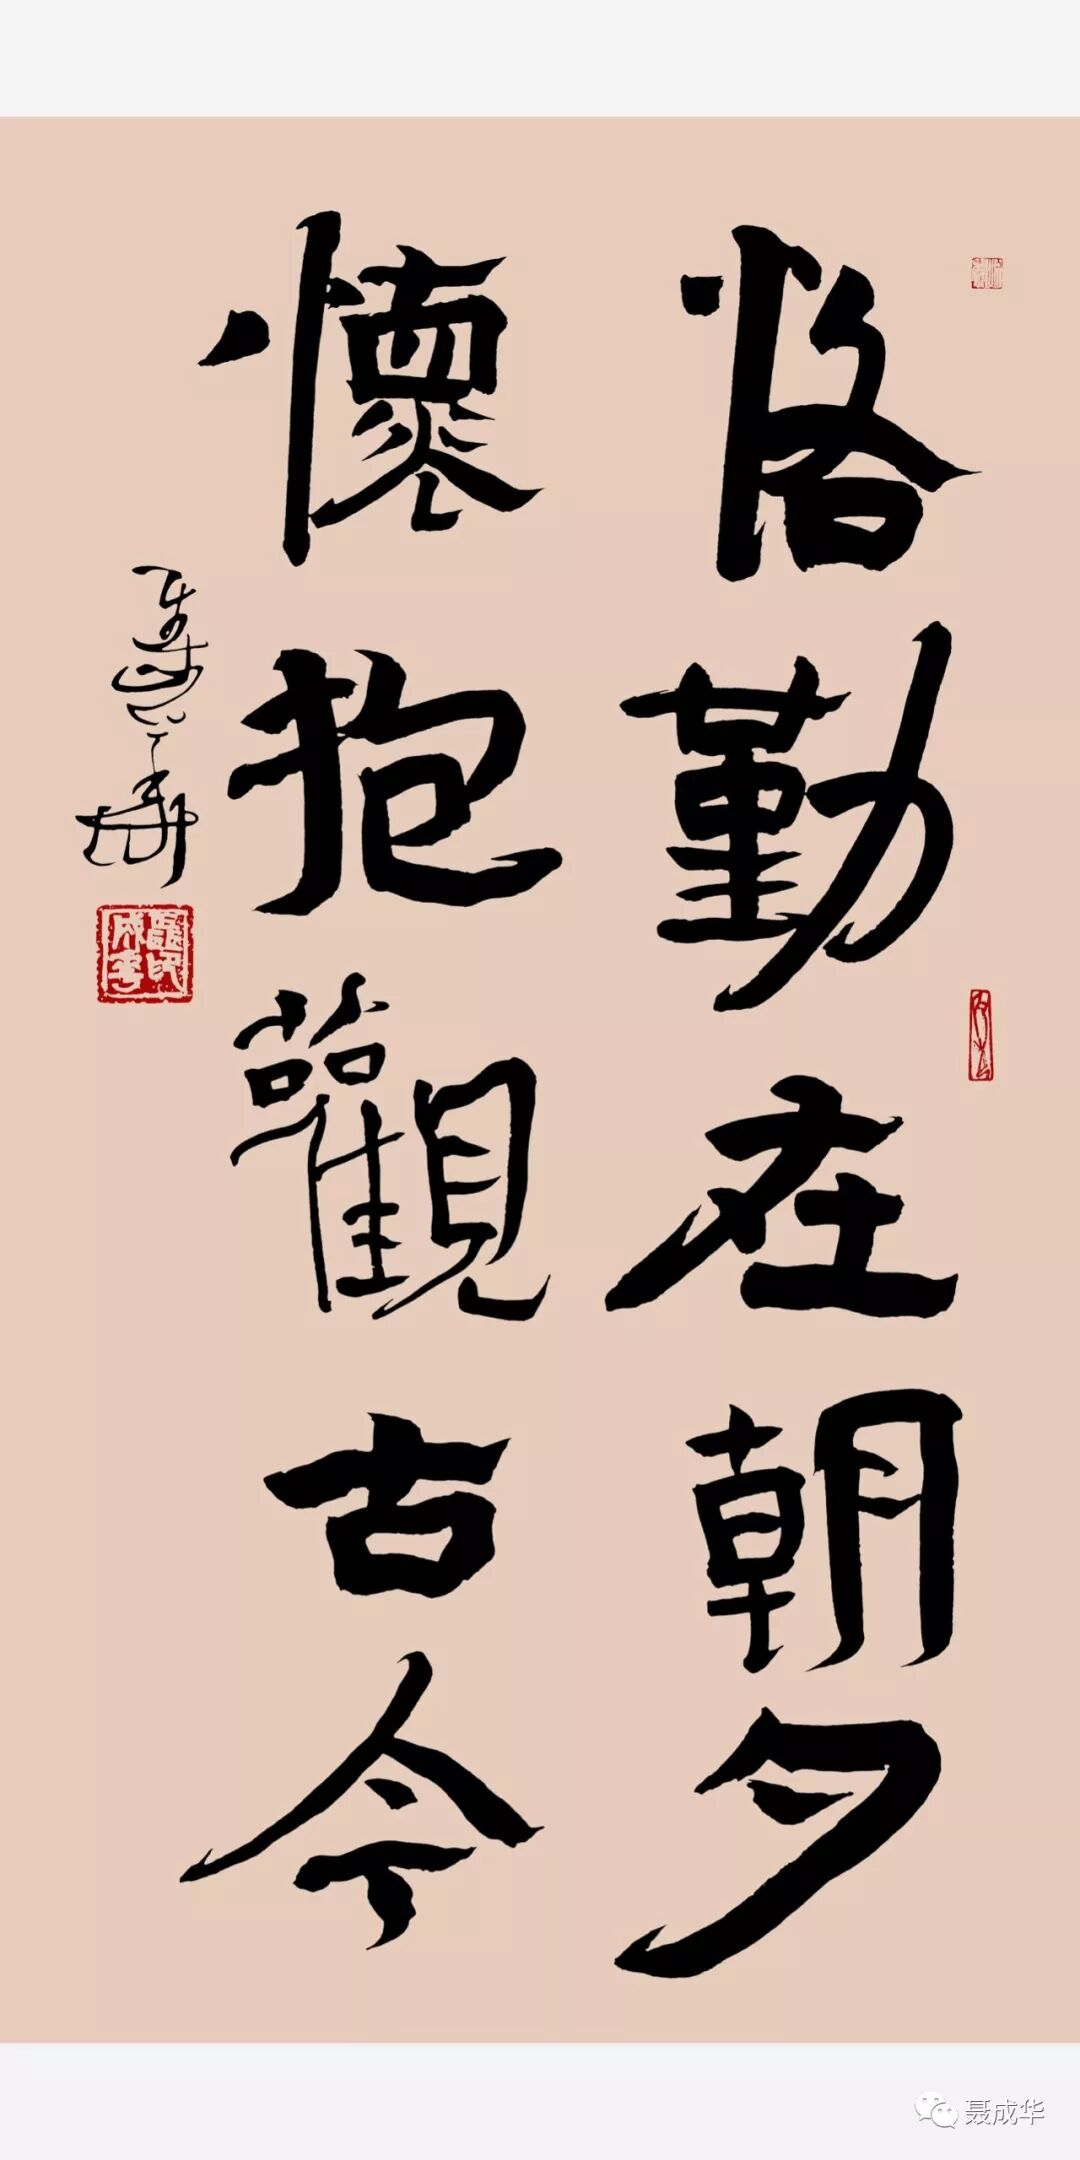 恪勤在朝夕
懷抱觀古今
聂成华